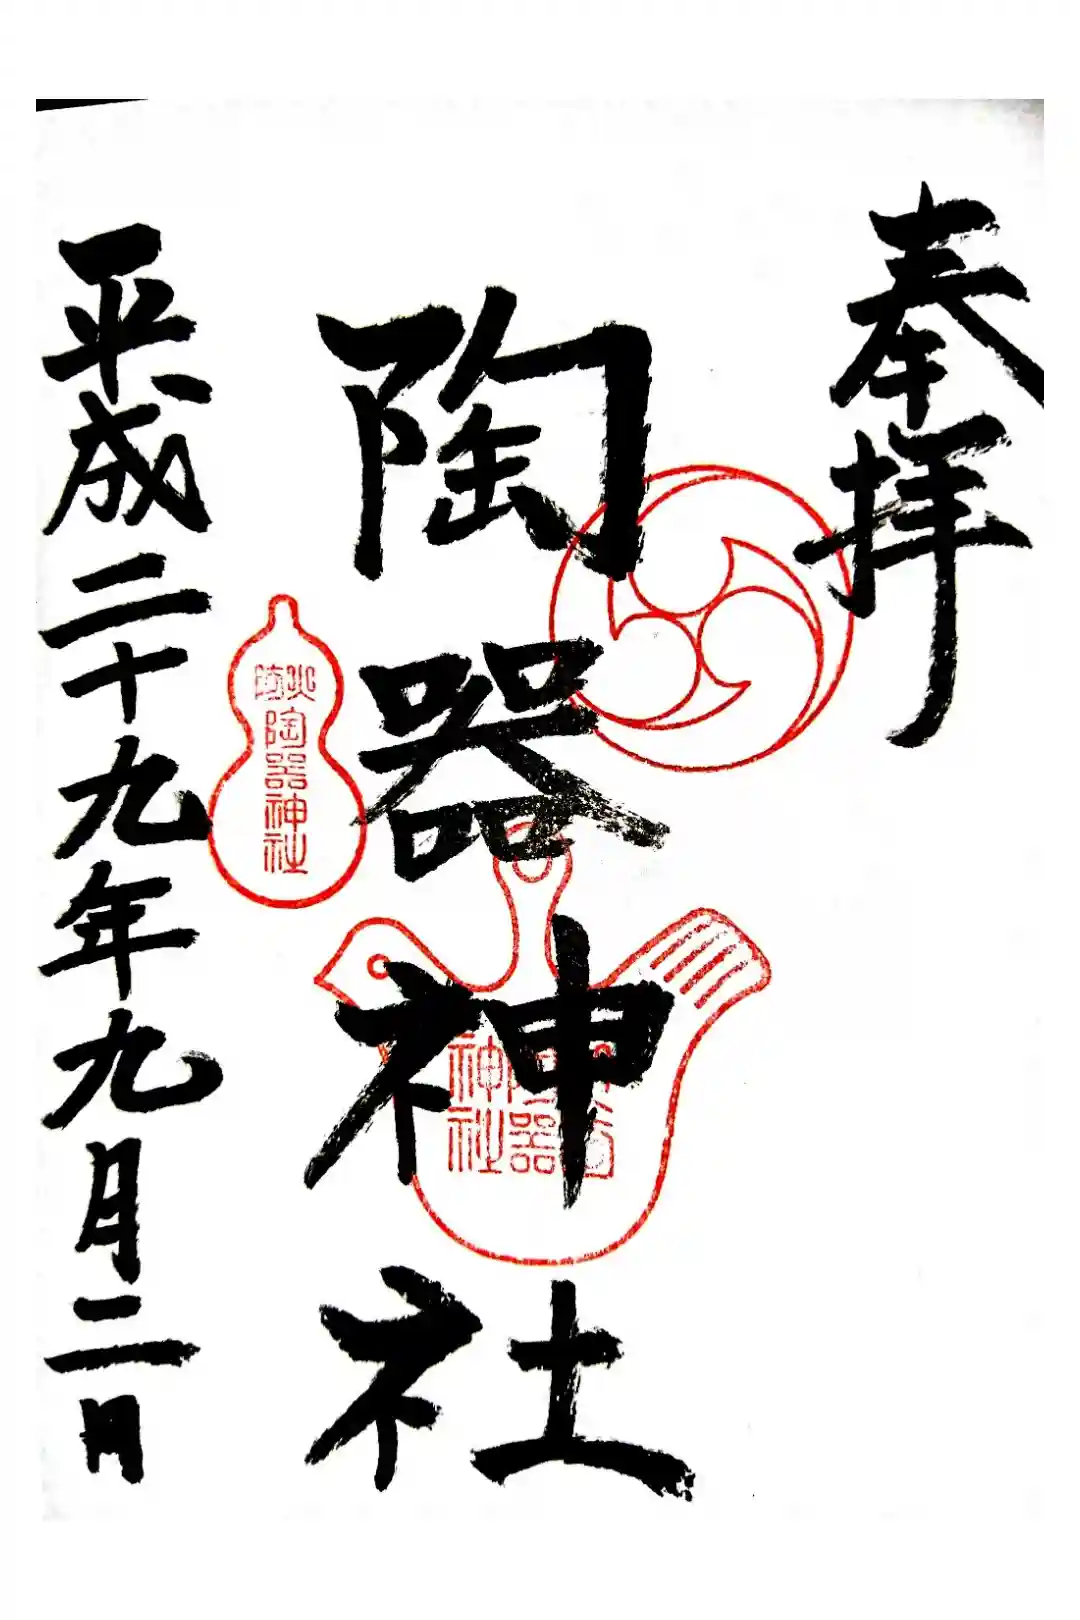 奉拝
陶器神社
平成二十九年九月二日
陶器神社
器
神社